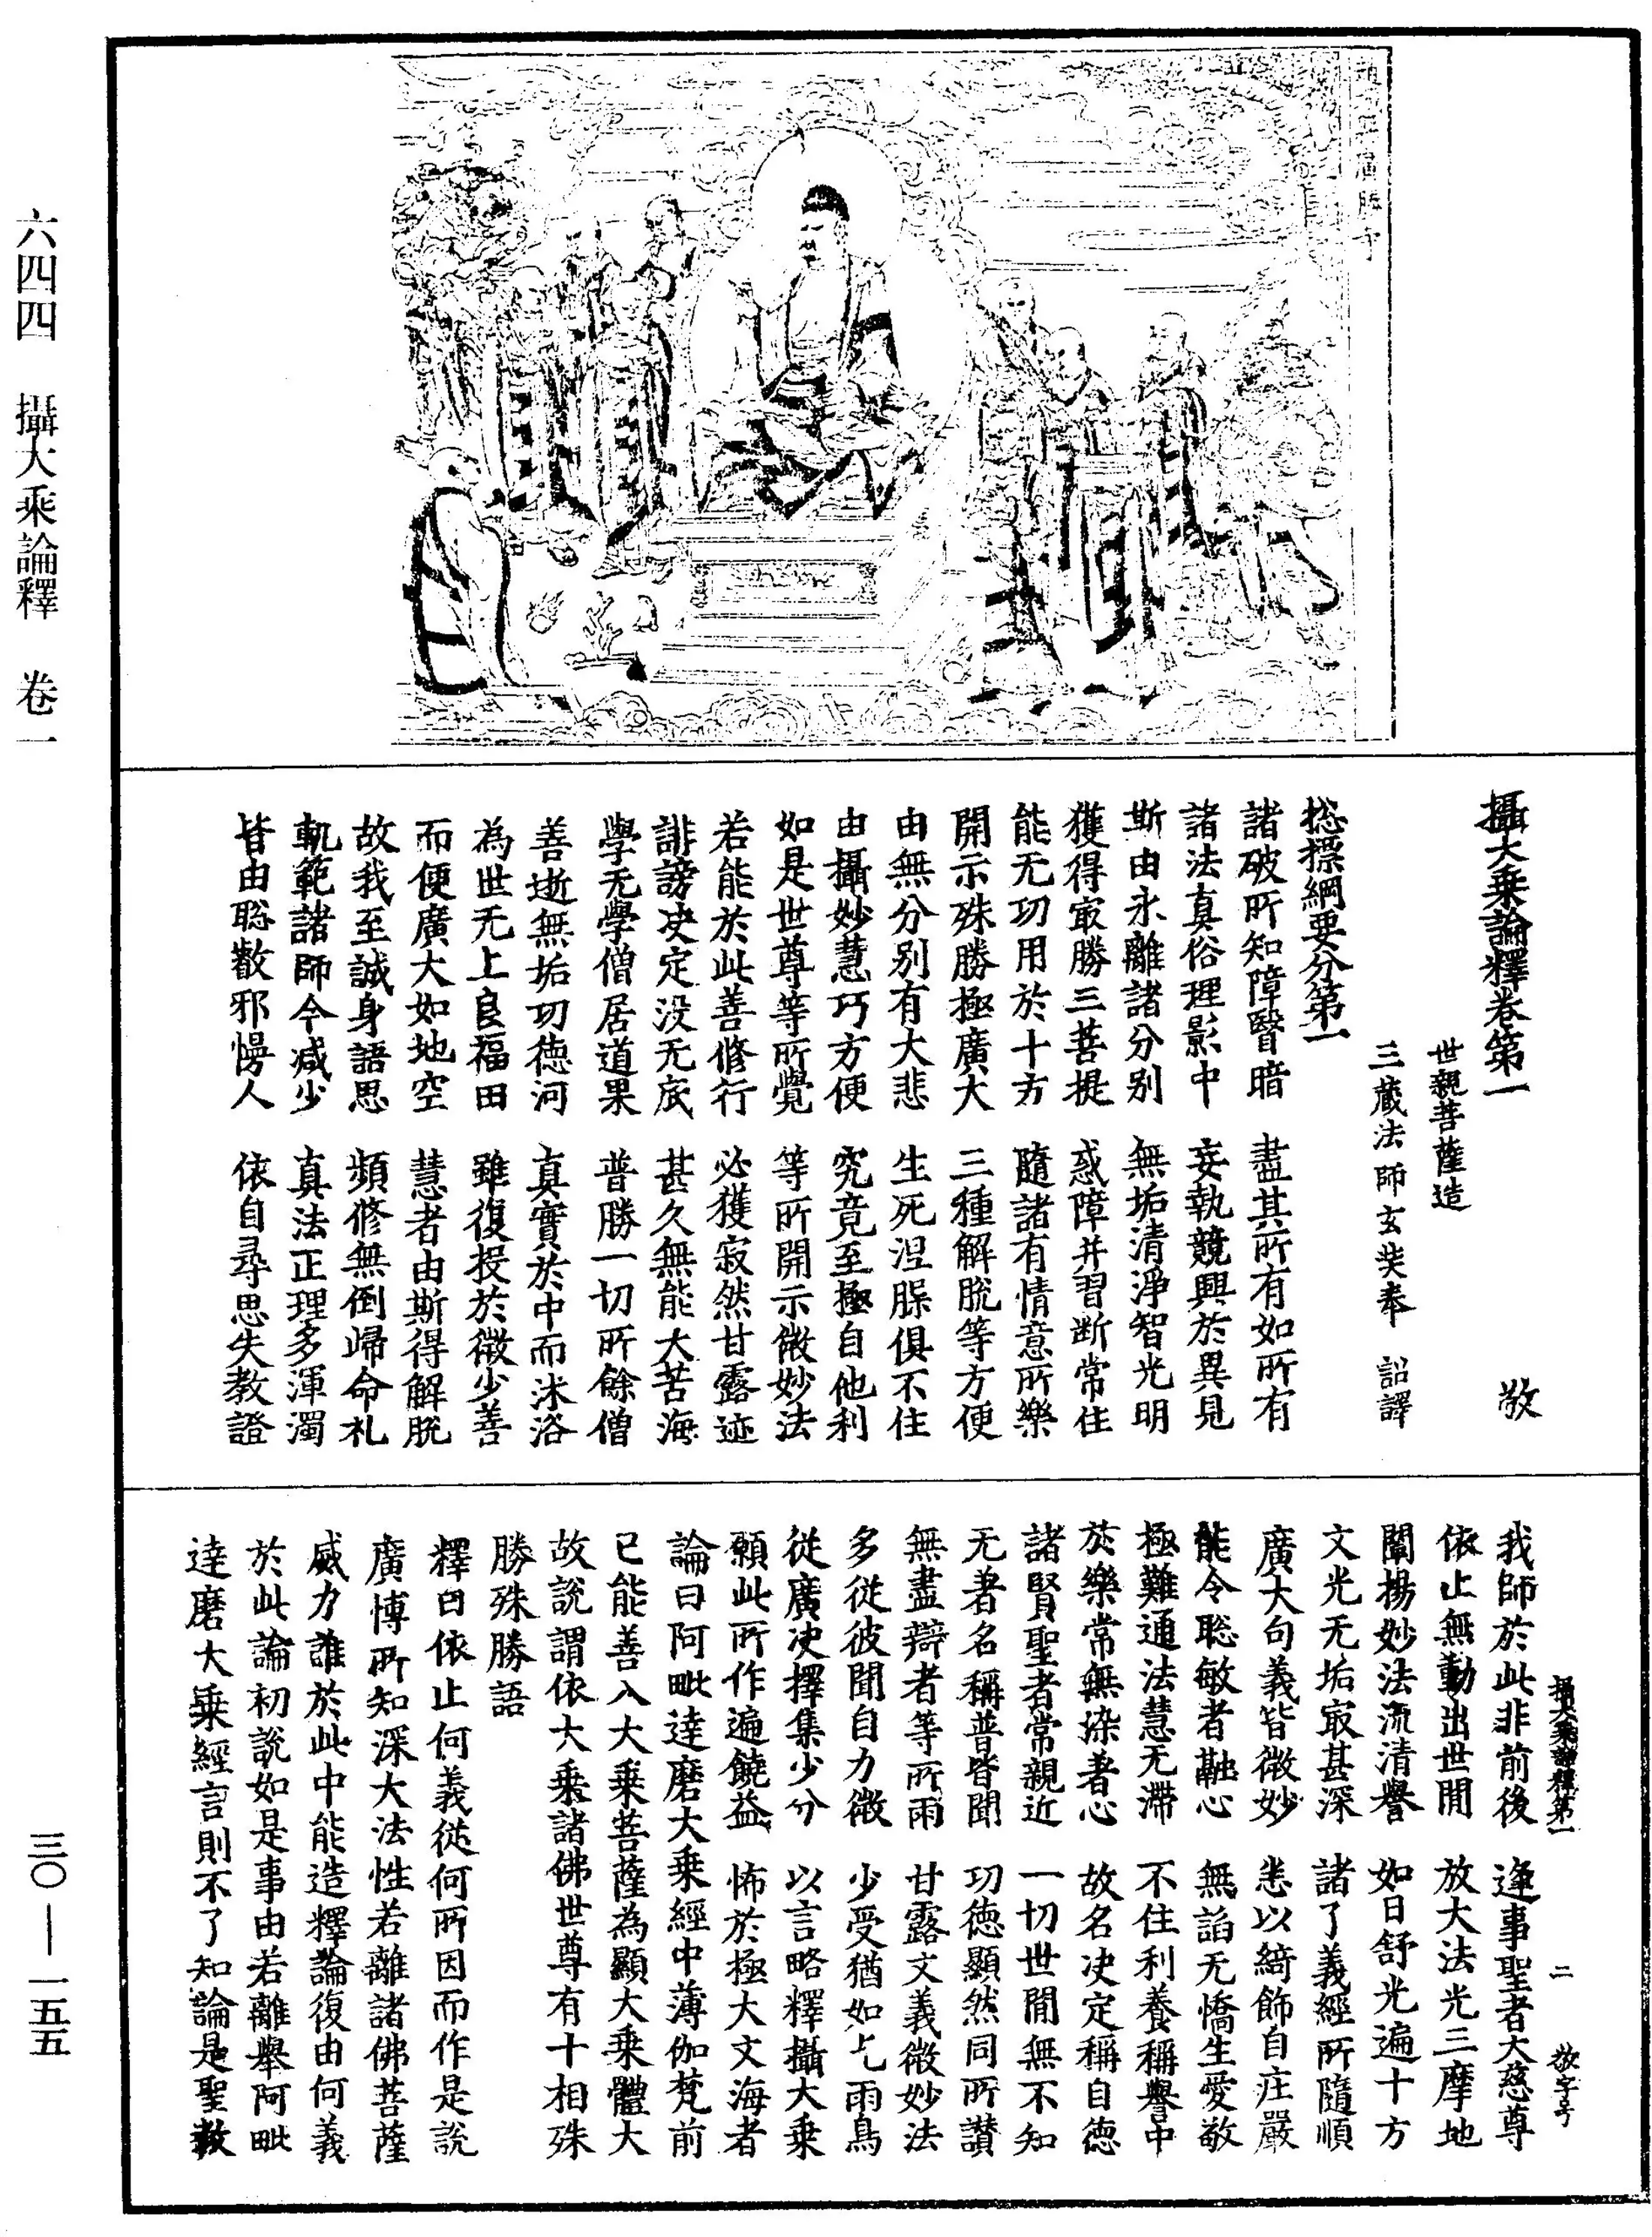 攝大乘論釋卷第一　敬
世親菩薩造
三藏法師玄奘奉　詔譯
揔摽綱要分第一
諸破所知障瞖暗　盡其所有如所有
諸法真俗理影中　妄執競興於異見
斯由永離諸分别　無垢清淨智光明
獲得㝡勝三菩提　惑障并習斷常住
能无功用於十方　隨諸有情意所樂
開示殊勝極廣大　三種解脫等方便
由無分别有大悲　生死涅槃俱不住
由攝妙慧巧方便　究竟至極自他利
如是世尊等所覺　等所開示微妙法
若能於此善修行　必獲寂然甘露迹
誹謗决定没无底　甚久無能大苦海
學无學僧居道果　普勝一切所餘僧
善逝無垢功德河　真實於中而沐浴
為世无上良福田　雖復投於微少善
而便廣大如地空　慧者由斯得解脫
故我至誠身語思　頻修無倒歸命礼
軌範諸師今減少　真法正理多渾濁
皆由聡叡邪慢人　依自尋思失教證
攝大乘論釋第一　二　敬字号
我師於此非前後　逢事聖者大慈尊
依止無動出世間　放大法光三摩地
闡揚妙法流清譽　如日舒光遍十方
文光无垢㝡甚深　諸了義經所隨順
廣大句義皆微妙　悉以綺飾自庄嚴
能令聡敏者融心　無諂无憍生愛敬
極難通法慧无滯　不住利養稱譽中
於樂常無染著心　故名决定稱自德
諸賢聖者常親近　一切世間無不知
无著名稱普皆聞　功德顯然同所讃
無盡辯者等所雨　甘露文義微妙法
多從彼聞自力微　少受猶如乞雨鳥
從廣决擇集少分　以言略釋攝大乘
願此所作遍饒益　怖於極大文海者
論曰阿毗達磨大乘經中薄伽梵前
已能善入大乘菩薩為顯大乘體大
故說謂依大乘諸佛世尊有十相殊
勝殊勝語
釋曰依止何義從何所因而作是說
廣博所知深大法性若離諸佛菩薩
威力誰於此中能造釋論復由何義
於此論初說如是事由若離舉阿毗
達磨大乘經言則不了知論是聖教
六四四　攝大乘論釋　卷一
三〇—一五五